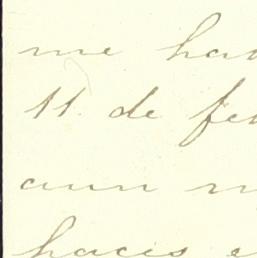 me ha
11. de fe
aun m
haces e